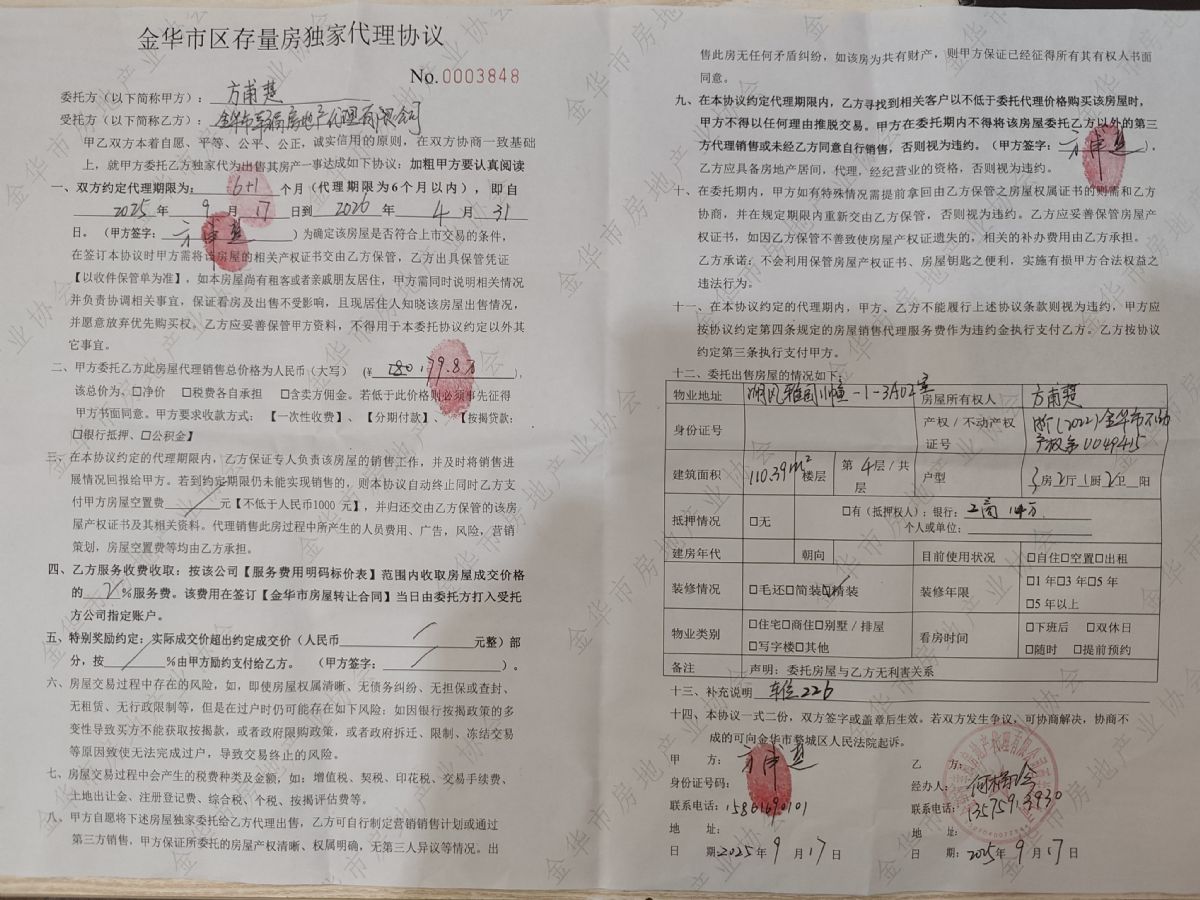 金华市区存量房独家代理协议
No.0003848
委托方（以下简称甲方）：方甫慧
受托方（以下简称乙方）：金华市 房地产代理有限公司
甲乙双方本着自愿、平等、公平、公正，诚实信用的原则，在双方协商一致基础
上，就甲方委托乙方独家代为出售其房产一事达成如下协议：加粗甲方要认真阅读
一、双方约定代理期限为：6+1个月（代理期限为6个月以内），即自
2025年9月17日到2026年4月31
日。（甲方签字：方甫慧）为确定该房屋是否符合上市交易的条件，
在签订本协议时甲方需将该房屋的相关产权证书交由乙方保管，乙方出具保管凭证
【以收件保管单为准】，如本房屋尚有租客或者亲戚朋友居住，甲方需同时说明相关情况
并负责协调相关事宜，保证看房及出售不受影响，且现居住人知晓该房屋出售情况，
并愿意放弃优先购买权。乙方应妥善保管甲方资料，不得用于本委托协议约定以外其
它事宜。
二、甲方委托乙方此房屋代理销售总价格为人民币（大写）（¥ 179.8万），
该总价为、□净价 □税费各自承担 □含卖方佣金。若低于此价格则必须事先征得
甲方书面同意。甲方要求收款方式：【一次性收费】、【分期付款】、【按揭贷款：
□银行抵押、□公积金】
三、在本协议约定的代理期限内，乙方保证专人负责该房屋的销售工作，并及时将销售进
展情况回报给甲方。若到约定期限仍未能实现销售的，则本协议自动终止同时乙方支
付甲方房屋空置费 / 元【不低于人民币1000 元】，并归还交由乙方保管的该房
屋产权证书及其相关资料。代理销售此房过程中所产生的人员费用、广告，风险，营销
策划，房屋空置费等均由乙方承担。
四、乙方服务收费收取：按该公司【服务费用明码标价表】范围内收取房屋成交价格
的2%服务费。该费用在签订【金华市房屋转让合同】当日由委托方打入受托
方公司指定账户。
五、特别奖励约定：实际成交价超出约定成交价（人民币 / 元整）部
分，按 / %由甲方励约支付给乙方。（甲方签字： / ）。
六、房屋交易过程中存在的风险，如，即使房屋权属清晰、无债务纠纷、无担保或查封、
无租赁、无行政限制等，但是在过户时仍可能存在如下风险：如因银行按揭政策的多
变性导致买方不能获取按揭款，或者政府限购政策，或者政府拆迁、限制、冻结交易
等原因致使无法完成过户，导致交易终止的风险。
七、房屋交易过程中会产生的税费种类及金额，如：增值税、契税、印花税、交易手续费、
土地出让金、注册登记费、综合税、个税、按揭评估费等。
八、甲方自愿将下述房屋独家委托给乙方代理出售，乙方可自行制定营销销售计划或通过
第三方销售，甲方保证所委托的房屋产权清晰、权属明确，无第三人异议等情况。出
售此房无任何矛盾纠纷，如该房为共有财产，则甲方保证已经征得所有其有权人书面
同意。
九、在本协议约定代理期限内，乙方寻找到相关客户以不低于委托代理价格购买该房屋时，
甲方不得以任何理由推脱交易。甲方在委托期内不得将该房屋委托乙方以外的第三
方代理销售或未经乙方同意自行销售，否则视为违约。（甲方签字：方甫慧），
乙方应具备房地产居间，代理，经纪营业的资格，否则视为违约。
十、在委托期内，甲方如有特殊情况需提前拿回由乙方保管之房屋权属证书的则需和乙方
协商，并在规定期限内重新交由乙方保管，否则视为违约。乙方应妥善保管房屋产
权证书，如因乙方保管不善致使房屋产权证遗失的，相关的补办费用由乙方承担。
乙方承诺：不会利用保管房屋产权证书、房屋钥匙之便利，实施有损甲方合法权益之
违法行为。
十一、在本协议约定的代理期内，甲方、乙方不能履行上述协议条款则视为违约，甲方应
按协议约定第四条规定的房屋销售代理服务费作为违约金执行支付乙方。乙方按协议
约定第三条执行支付甲方。
十二、委托出售房屋的情况如下：
物业地址 湖风雅园 幢-1-3A02室 房屋所有人 方甫慧
身份证号 产权/不动产权证号 浙(2022)金华市不动产权第0049415
建筑面积 110.39m² 楼层 第4层/共 层 户型 3房2厅1厨2卫 阳
抵押情况 □无 □有（抵押权人）：银行：工商
个人或单位：
建房年代 朝向 目前使用状况 □自住□空置□出租
装修情况 □毛还□简装□精装 装修年限 □1年□3年□5年
□5年以上
物业类别 □住宅□商住□别墅/排屋
□写字楼□其他 看房时间 □下班后 □双休日
□随时 □提前预约
备注 声明：委托房屋与乙方无利害关系
十三、补充说明 车位226
十四、本协议一式二份，双方签字或盖章后生效。若双方发生争议，可协商解决，协商不
成的可向金华市婺城区人民法院起诉。
甲 方：方甫慧
身份证号码：
联系电话：15861690101
地 址：
日 期：2025年9月17日
乙 方：
经办人：
联系电话：13575913930
地 址：
日 期：2025年9月17日